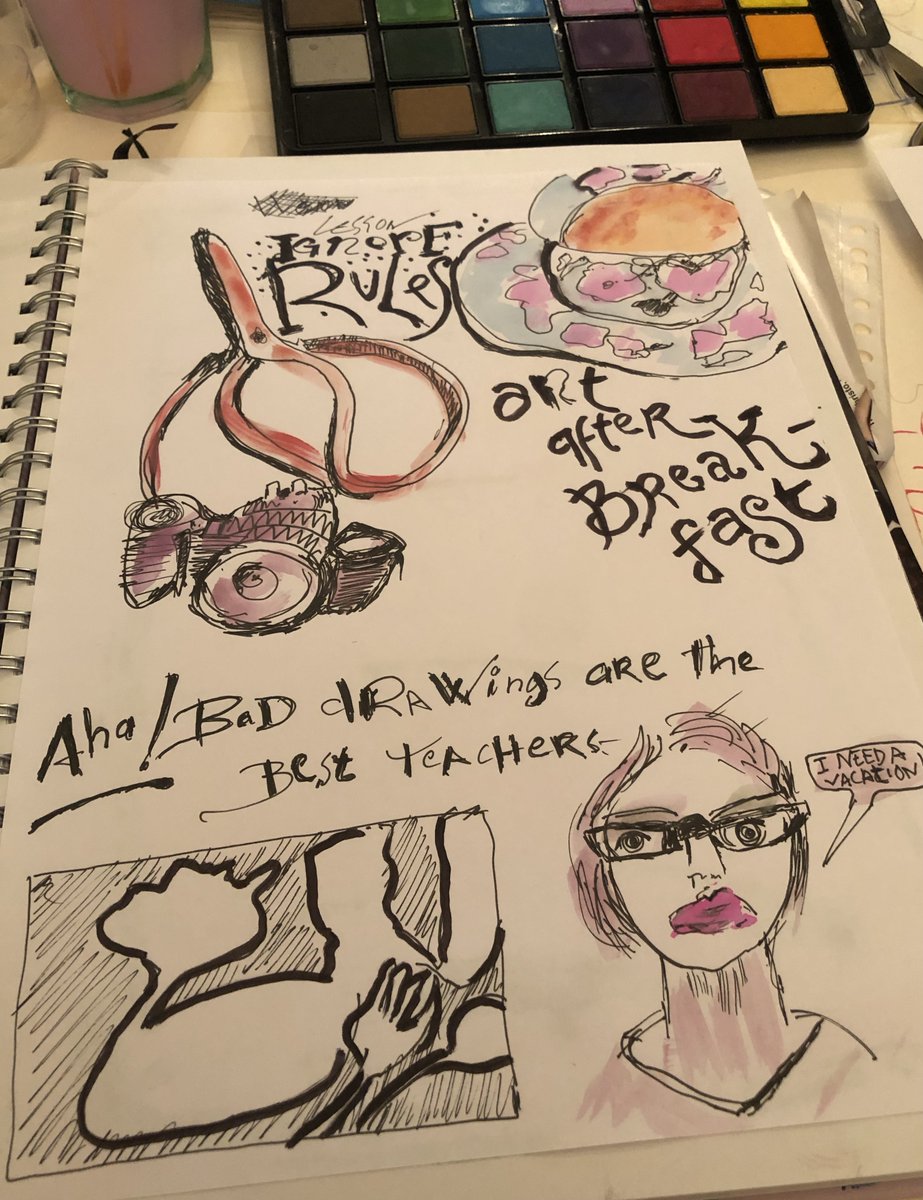 LESSON
IGNORE
RULES
ART
after
BREAK-
fast
Aha! BAD dRAWings ARE the
BEST TEACHERS-
I NEED A
VACATION